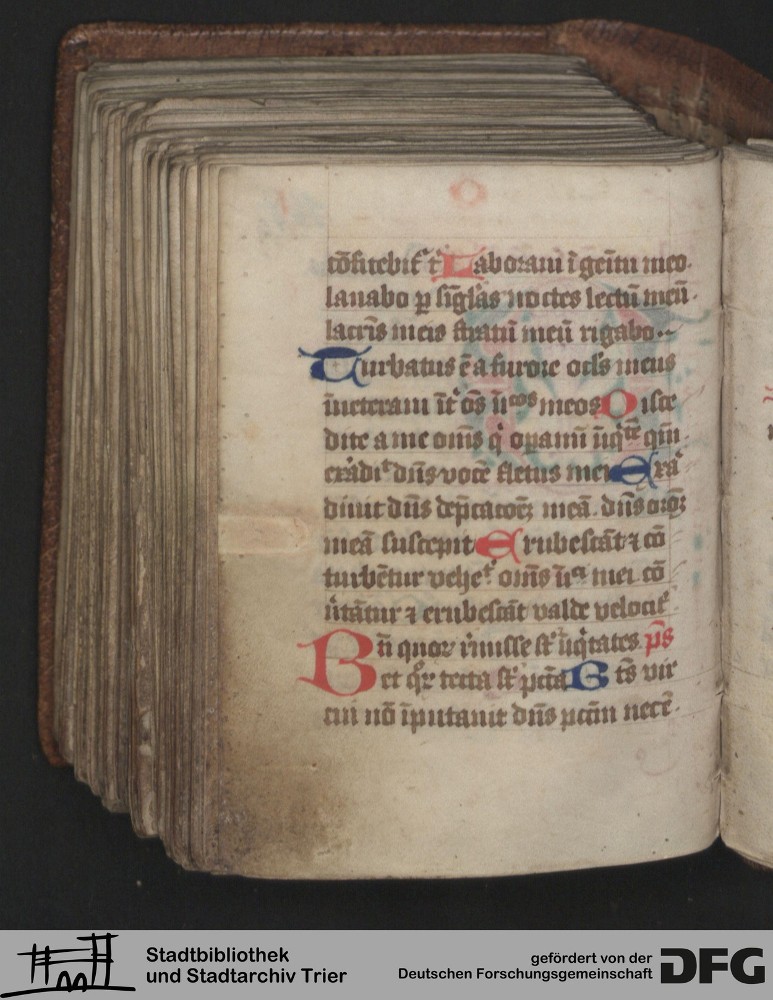 cōfitebit᷑ t᷑ Laboraui ī gēitu meo
lauabo ꝑ sīgl̄as noctes lectū meū.
lacrīs meis stratū meū rigabo..
Turbatus ē a furore ocl̄s meus
īueteraui īt᷑ oēs īīcos meos Disce
dite a me oīns q̇ oꝑamī īiq̇tē qm̄
exādit᷑ dn̄s vocē fletus mei Exā
diuit dn̄s dep̄catoēꝫ meā. dn̄s oroꝫ
meā suscepit Erubescāt ⁊ cō
turbētur vehet᷑ oīns īīa mei cō
ūtātur ⁊ erubescāt valde velocit᷑.
Bn̄ quoꝝ r̄misse st᷑ īiq̇tates ps̄
et qꝝ tecta st᷑ pctā Bt̄s vir
cui nō īputauit dn̄s pctm̄ nec ē.
Stadtbibliothek
und Stadtarchiv Trier
gefördert von der
Deutschen Forschungsgemeinschaft
DFG